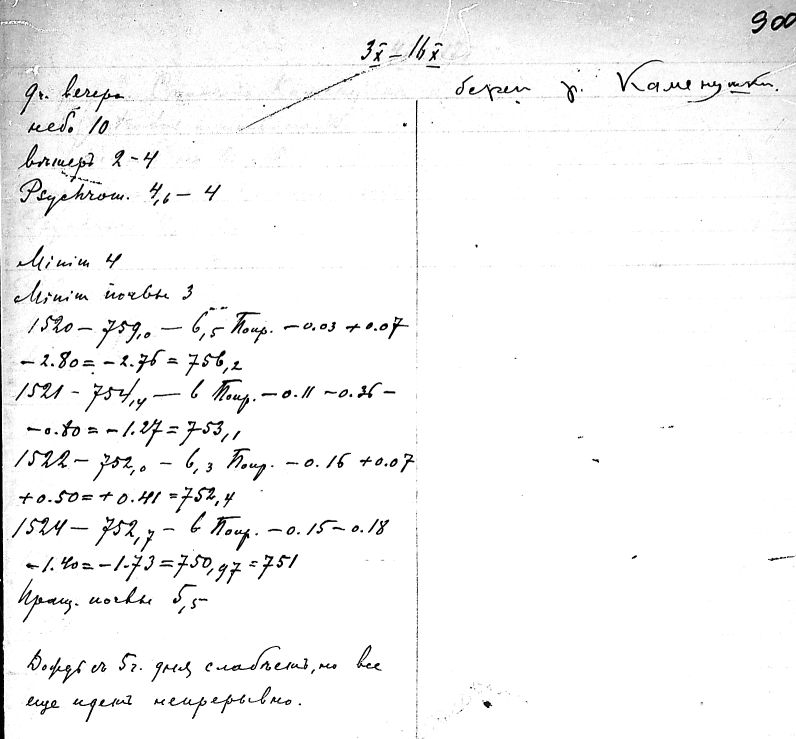 900
3 X – 16 X
9ч. вечера
берег р. Каменушки.
небо 10
вѣтеръ 2-4
Psychrom. 4,6 – 4
Minim 4
Minim почвы 3
1520 – 759,0 – 6,5 Попр. – 0.03 + 0.07
– 2.80 = – 2.76 = 756,2
1521 – 754,4 – 6 Попр. – 0.11 – 0.36 –
– 0.80 = – 1.27 = 753,1
1522 – 752,0 – 6,3 Попр. – 0.16 + 0.07
+ 0.50 = + 0.41 = 752,4
1524 – 752,7 – 6 Попр. – 0.15 – 0.18
– 1.40 = – 1.73 = 750,97 = 751
Пращ. почвы 5,5
Дождь съ 5 г. дня слабѣетъ, но все
еще идетъ непрерывно.